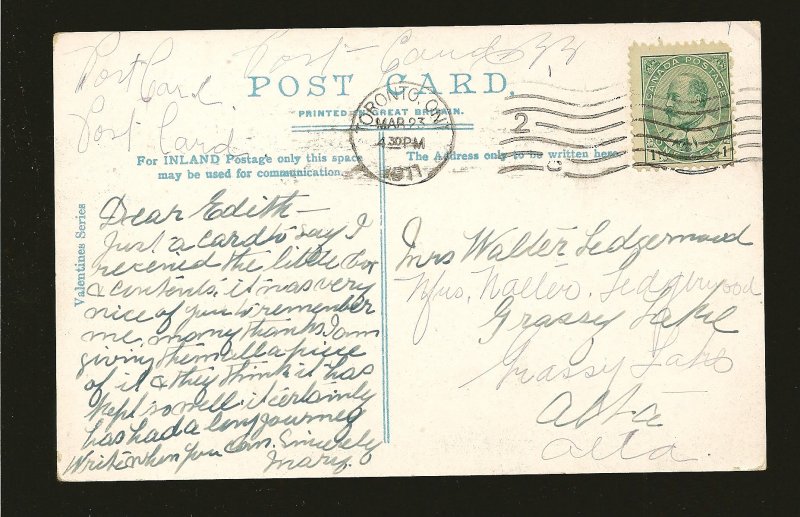 Post Card Post-Cards
POST CARD.
Post Card
PRINTED IN GREAT BRITAIN.
For INLAND Postage only this space
may be used for communication.
The Address only to be written here.
TORONTO, ONT
MAR 23
4 30 PM
1911
2
CANADA POSTAGE
1 1
Valentines Series
Dear Edith—
Just a card to say I
received the little box
& contents. it was very
nice of you to remember
me. many thanks. I am
giving them all a piece
of it & they think it has
kept so well. it certainly
has had a long journey
Write when you can. Sincerely
Mary.
Mrs Walter Ledgerwood
Mrs. Walter. Ledgerwood
Grassy Lake
Grassy Lake
Alta
Alta.